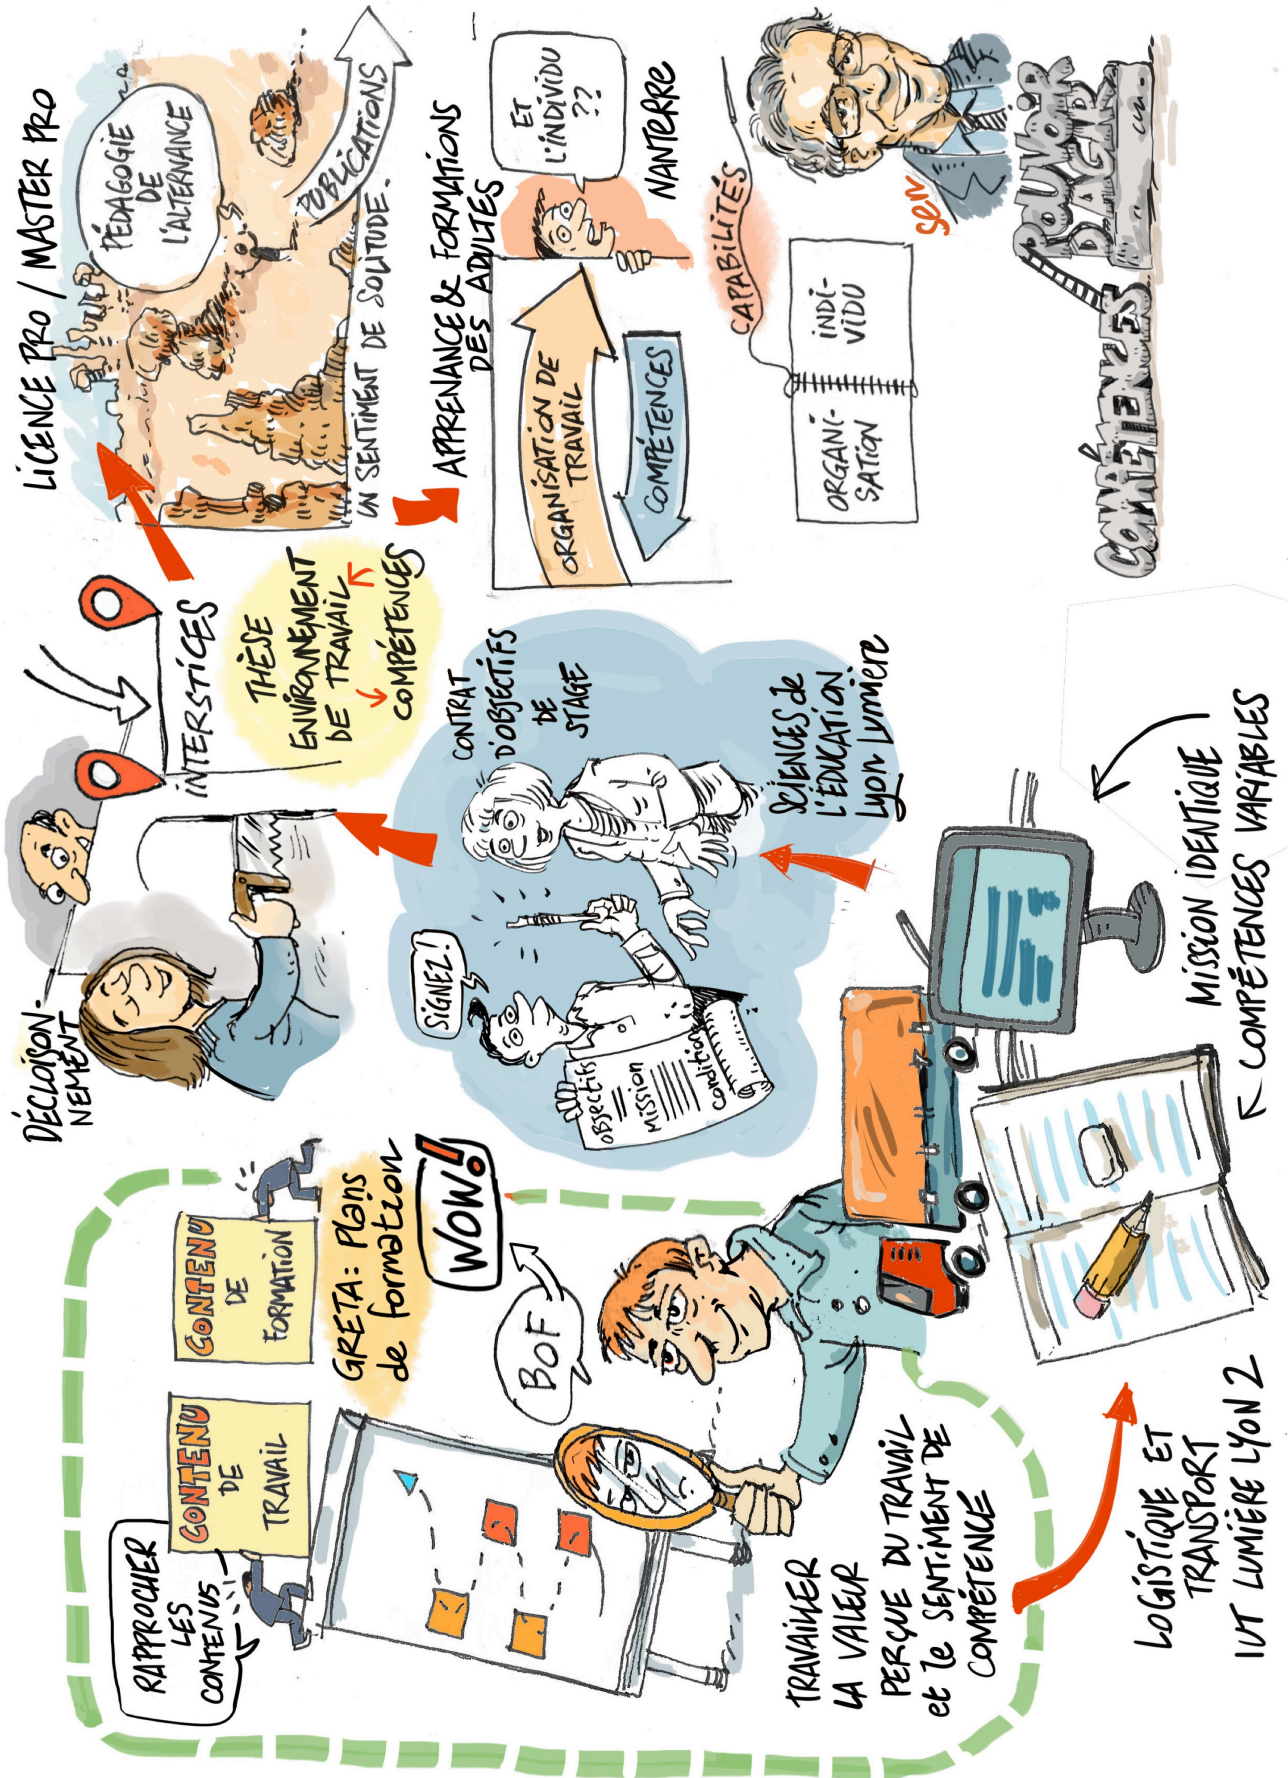 RAPPROCHER
LES
CONTENUS
CONTENU
DE
TRAVAIL
CONTENU
DE
FORMATION
GRETA: Plans
de formation
WOW!
BOF
TRAVAILLER
LA VALEUR
PERÇUE DU TRAVAIL
et le SENTIMENT DE
COMPÉTENCE
LOGISTIQUE ET
TRANSPORT
IUT LUMIÈRE LYON 2
MISSION IDENTIQUE
COMPÉTENCES VARIABLES
SCIENCES de
L'ÉDUCATION
Lyon Lumière
SIGNEZ!
OBJECTIFS
MISSION
Conditions
CONTRAT
D'OBJECTIFS
DE
STAGE
DÉCLOISON-
NEMENT
INTERSTICES
THÈSE
ENVIRONNEMENT
DE TRAVAIL
COMPÉTENCES
LICENCE PRO / MASTER PRO
PÉDAGOGIE
DE
L'ALTERNANCE
PUBLICATIONS
UN SENTIMENT DE SOLITUDE.
APPRENANCE & FORMATIONS
DES ADULTES
ORGANISATION DE
TRAVAIL
COMPÉTENCES
ET
L'INDIVIDU
??
NANTERRE
CAPABILITÉS
ORGANI-
SATION
INDI-
VIDU
Sen
COMPÉTENCES
POUVOIR
D'AGIR